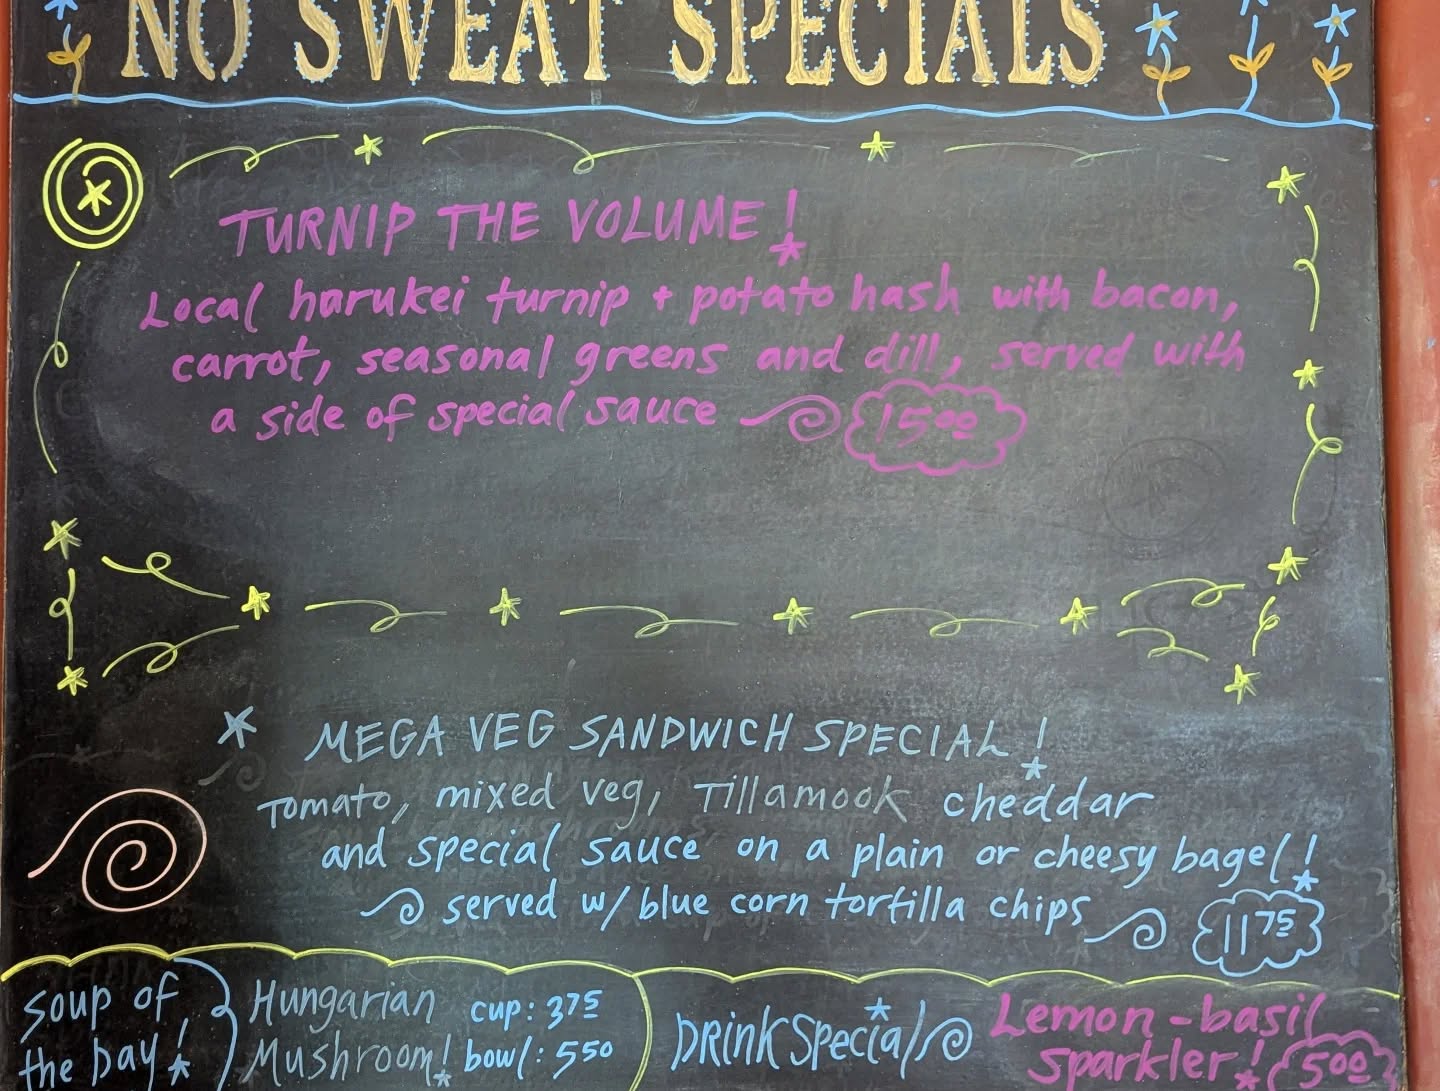 NO SWEAT SPECIALS
TURNIP THE VOLUME!
Local harukei turnip + potato hash with bacon,
carrot, seasonal greens and dill, served with
a side of special sauce 15.00
MEGA VEG SANDWICH SPECIAL!
Tomato, mixed veg, Tillamook cheddar
and special sauce on a plain or cheesy bagel!
served w/ blue corn tortilla chips 11.75
Soup of
the Day!
Hungarian cup: 3.75
Mushroom! bowl: 5.50
Drink Special
Lemon-basil
sparkler! 5.00